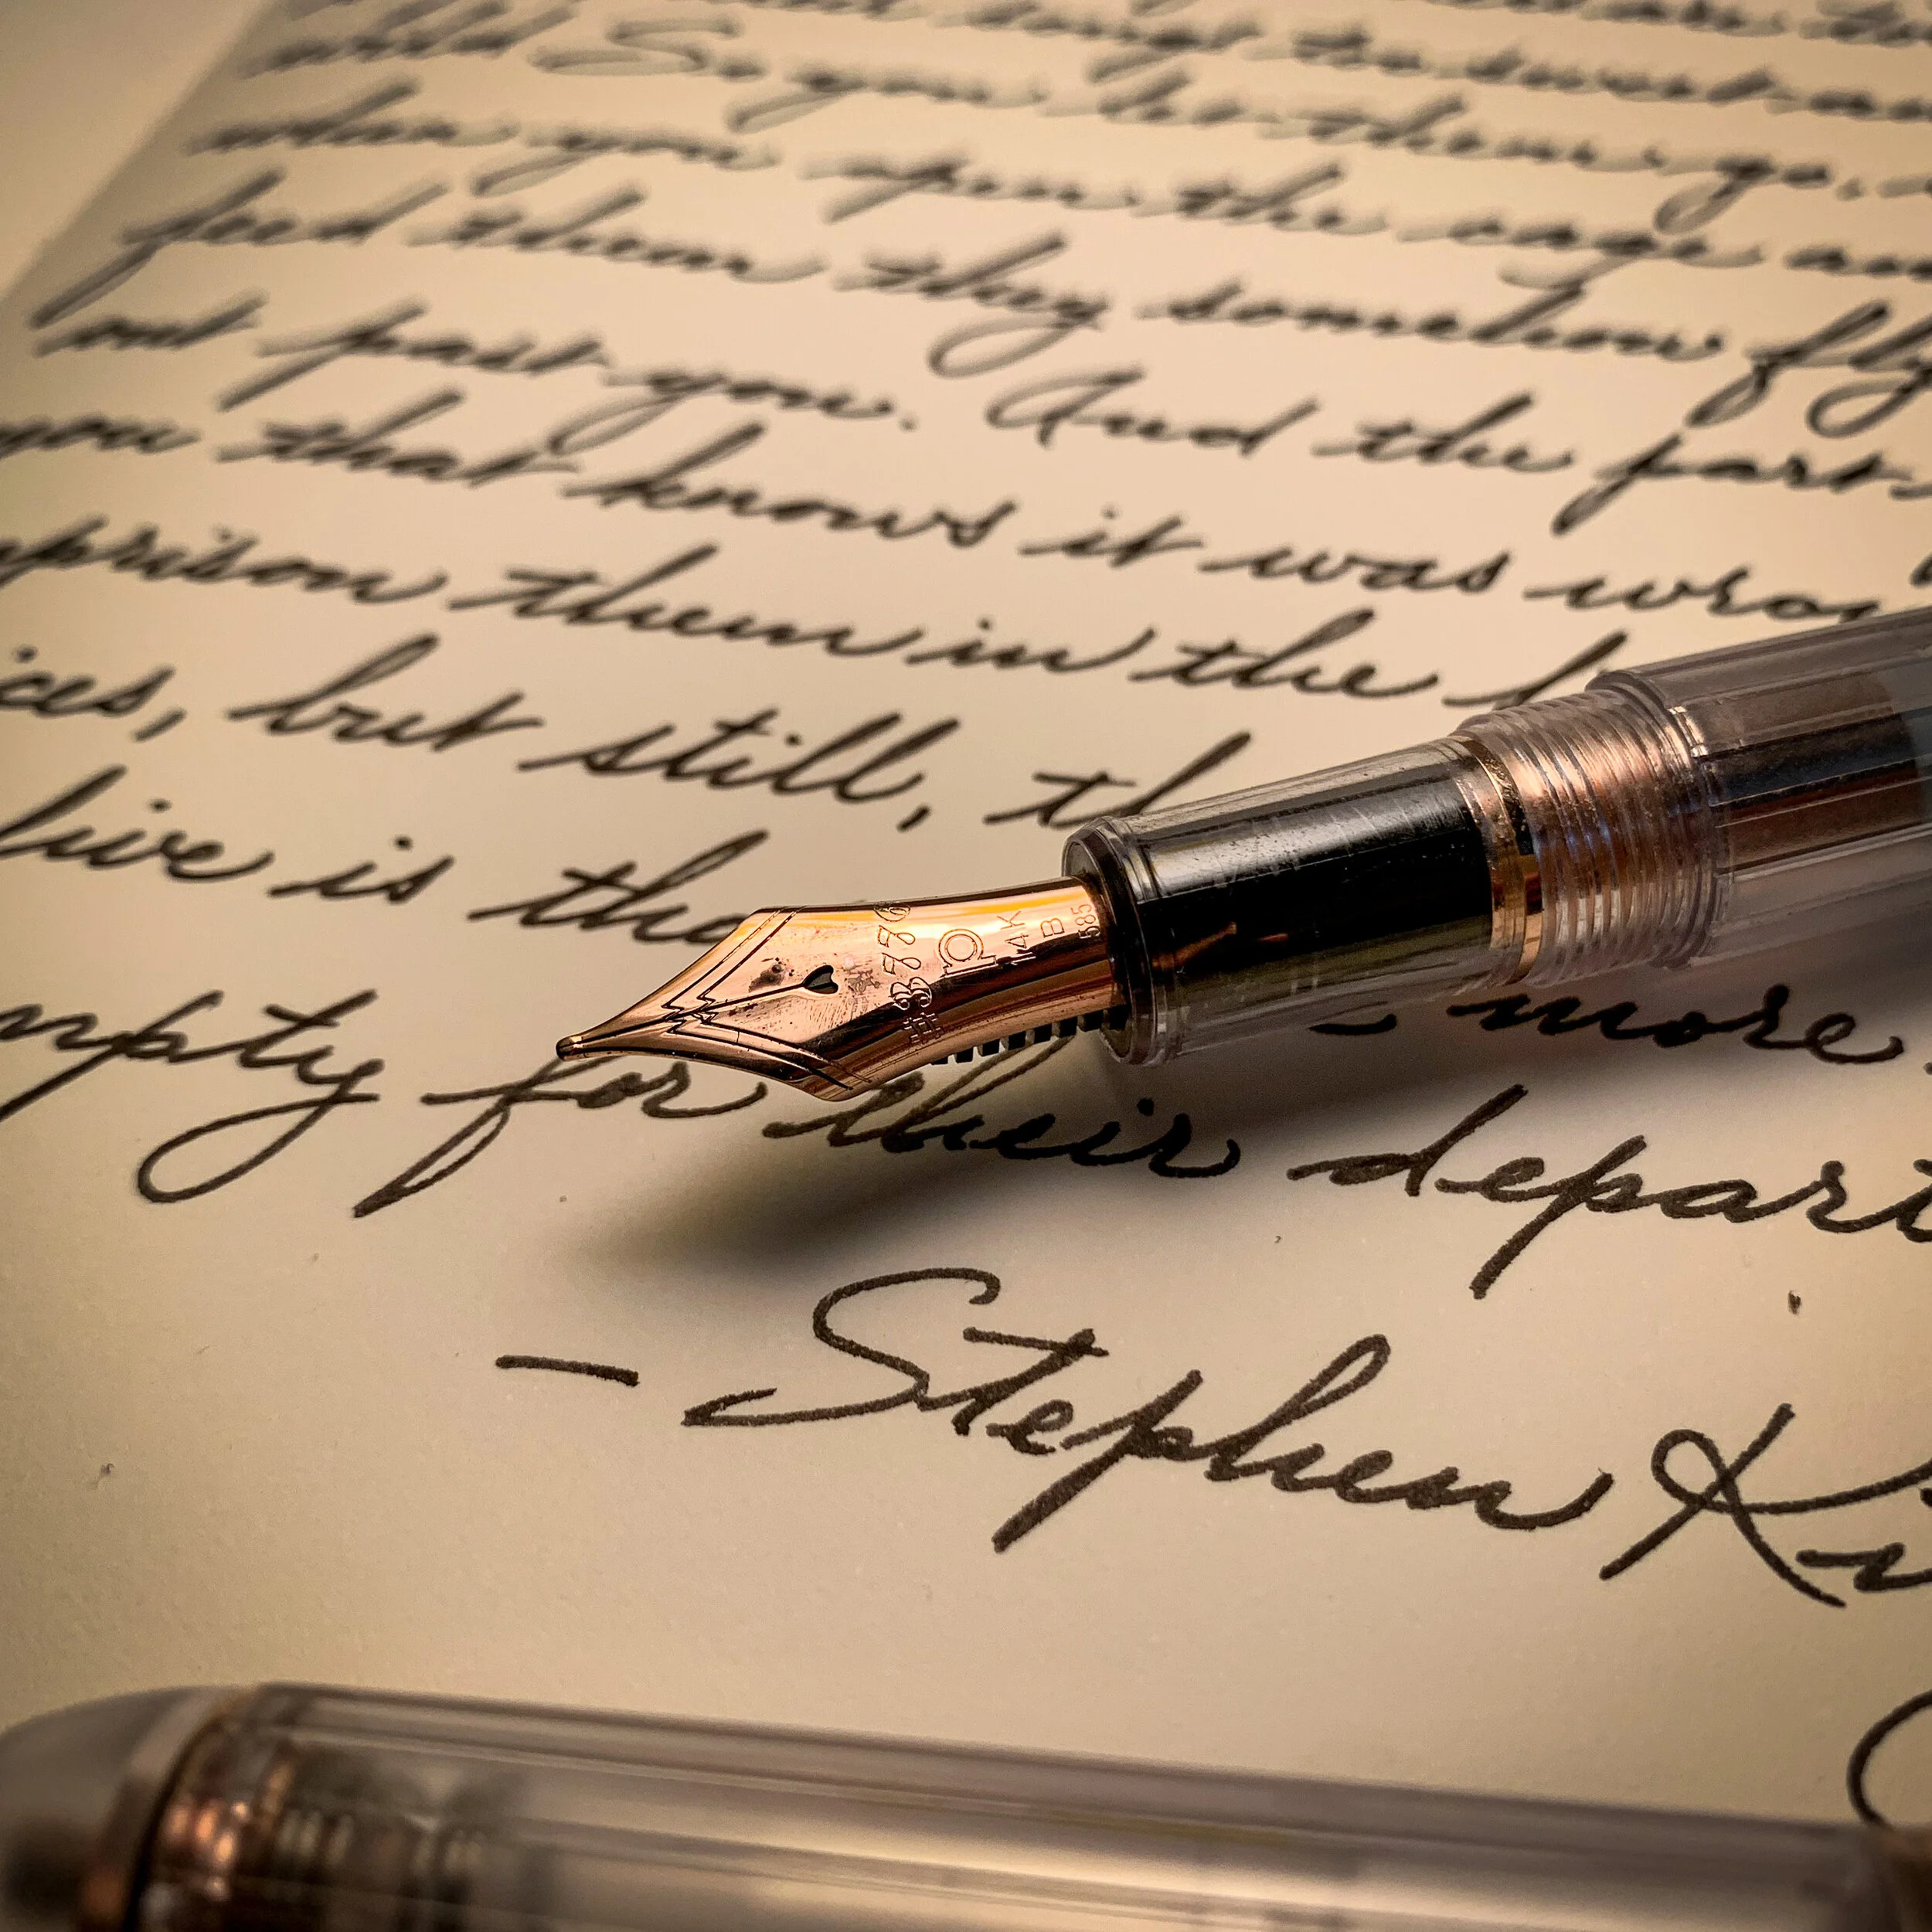 wild. So you let them go, or
when you open the cage and
feed them they somehow fly
out past you. And the part
you that knows it was wron
prison them in the
ices, but still, th
live is tha
more
mpty for their depart
- Stephen Ki
#3776
P
14K
B
585